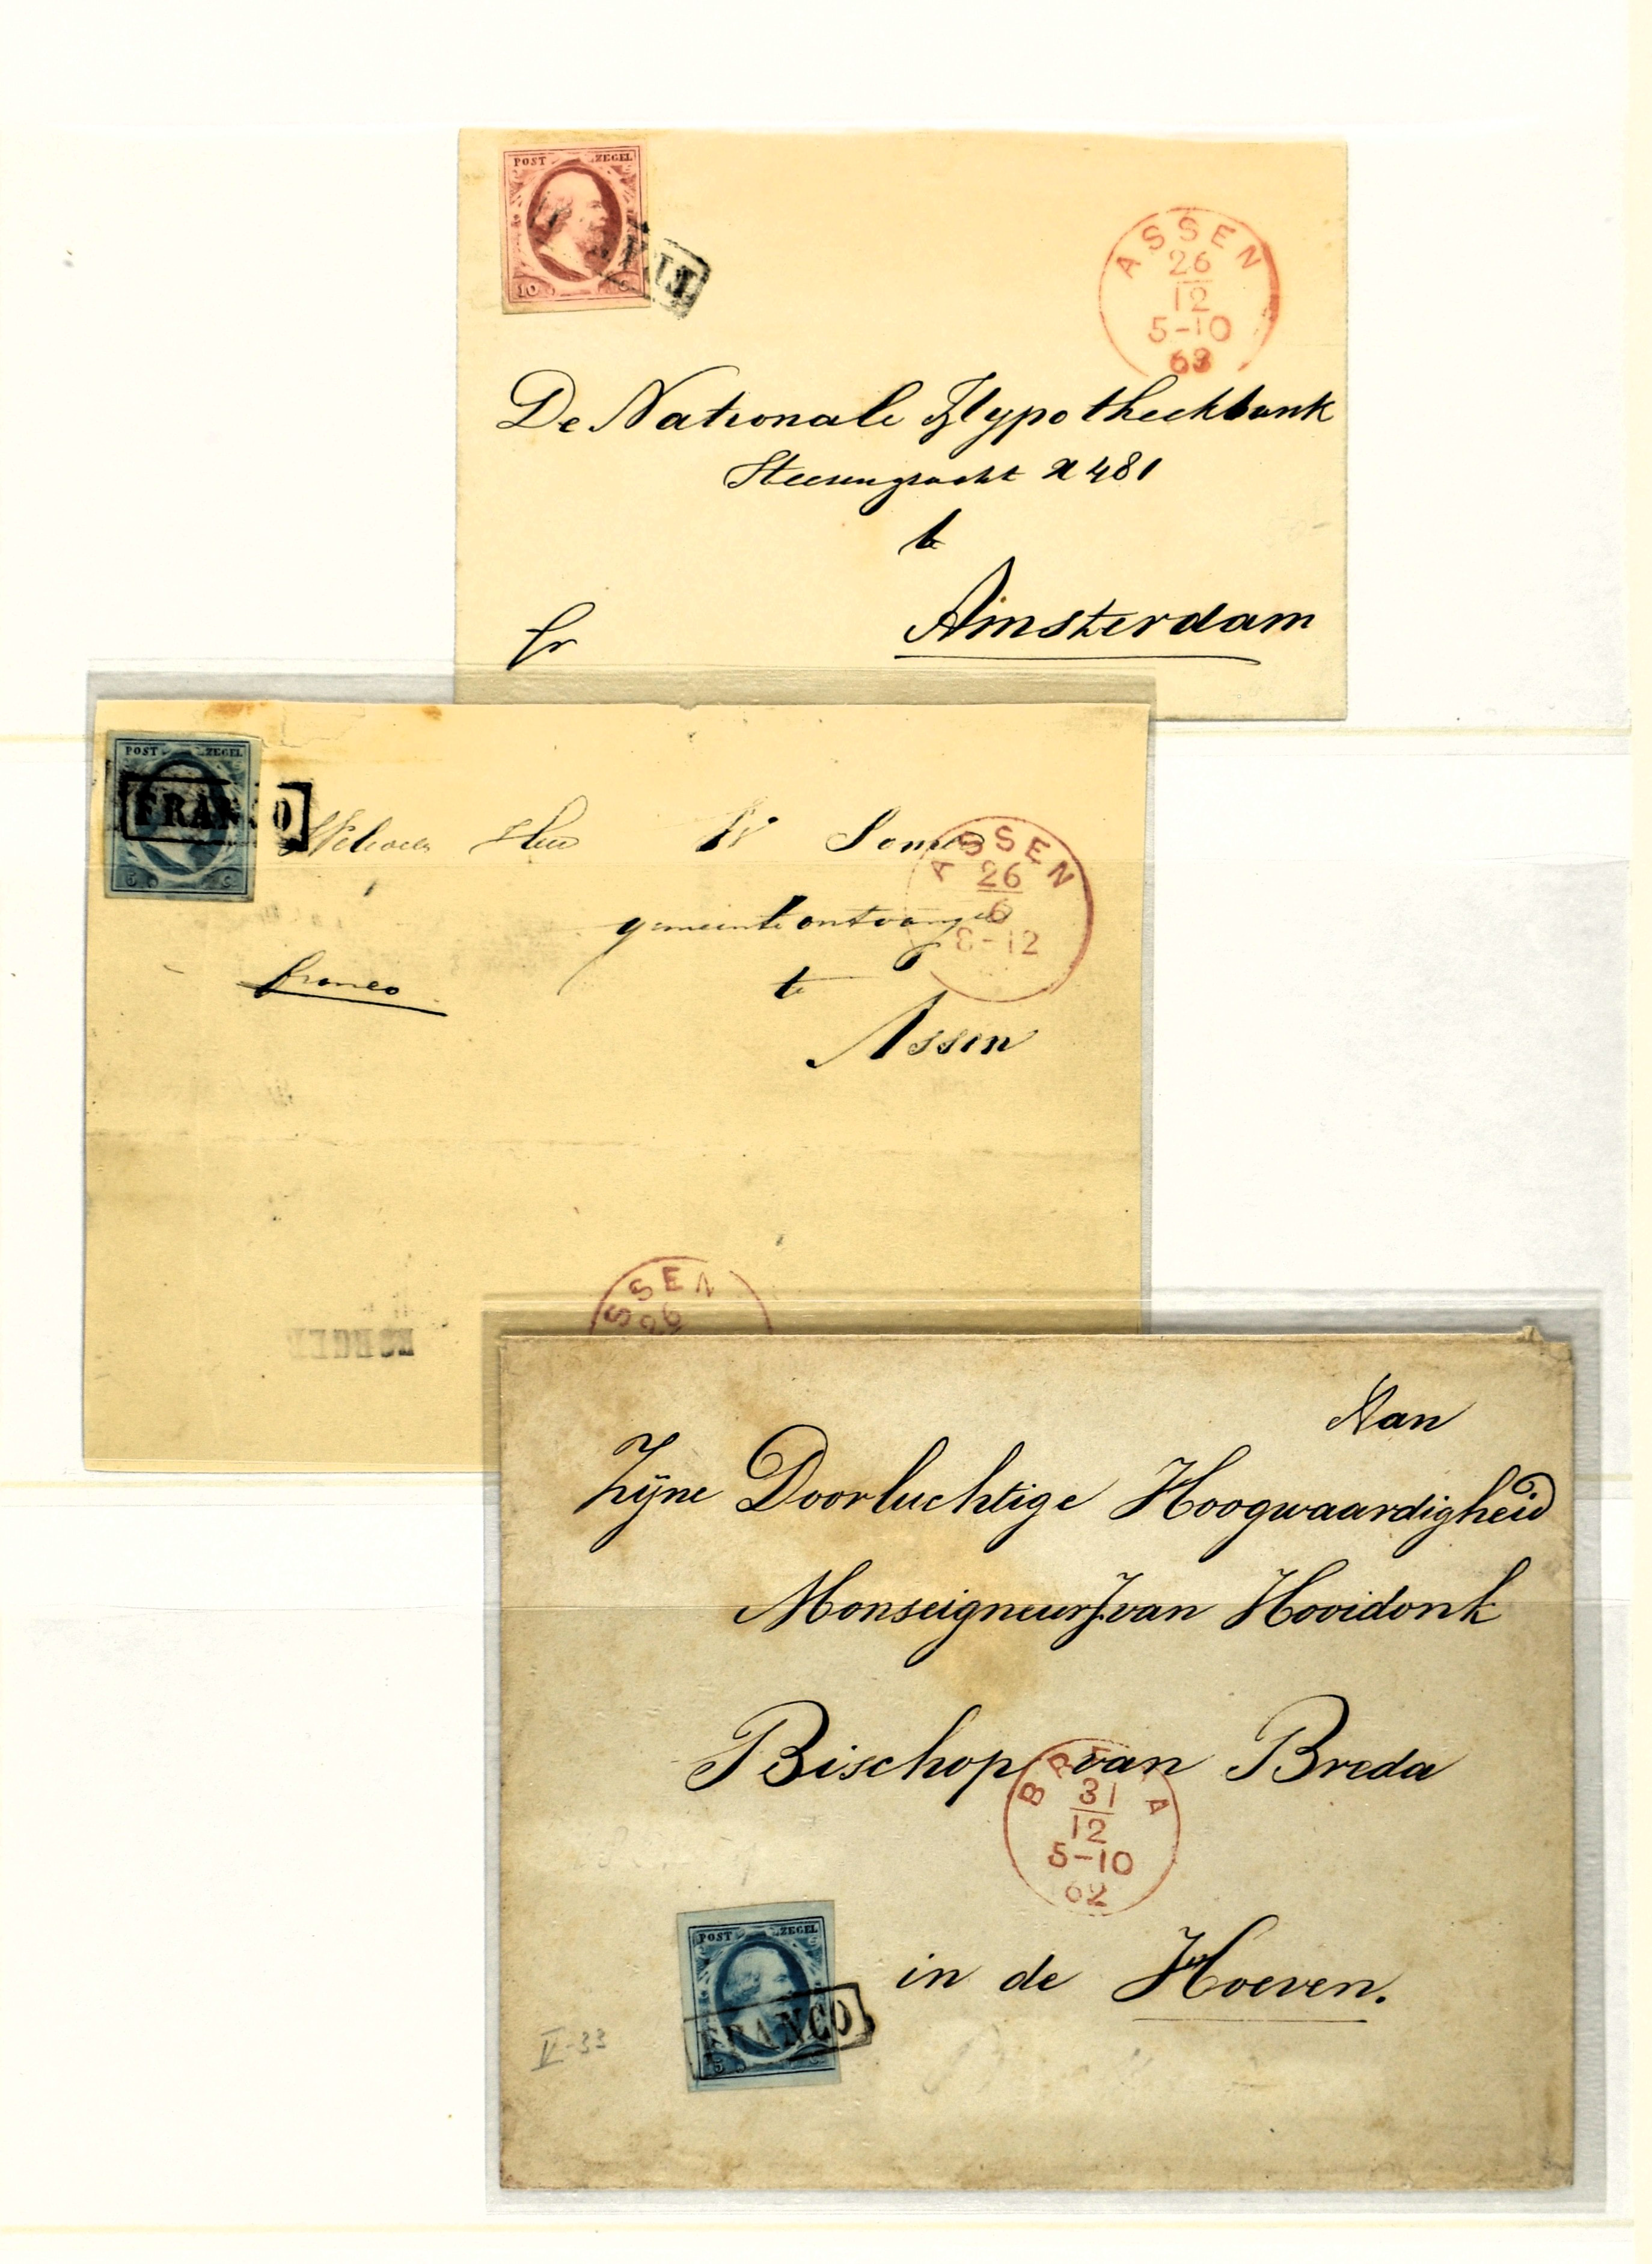 POST ZEGEL
10
ASSEN
26
12
5-10
De Nationale Hypotheekbank
Heerengracht 481
te
Amsterdam
fr
POST ZEGEL
5 C
FRANCO
Heer
ASSEN
26
6
8-12
gemeente ontvanger
franco
te
Assen
SSEN
26
Aan
Zijne Doorluchtige Hoogwaardigheid
Monseigneur J. van Hooidonk
Bischop van Breda
BREDA
31
12
5-10
62
POST ZEGEL
5
FRANCO
in de Hoeven.
II-33